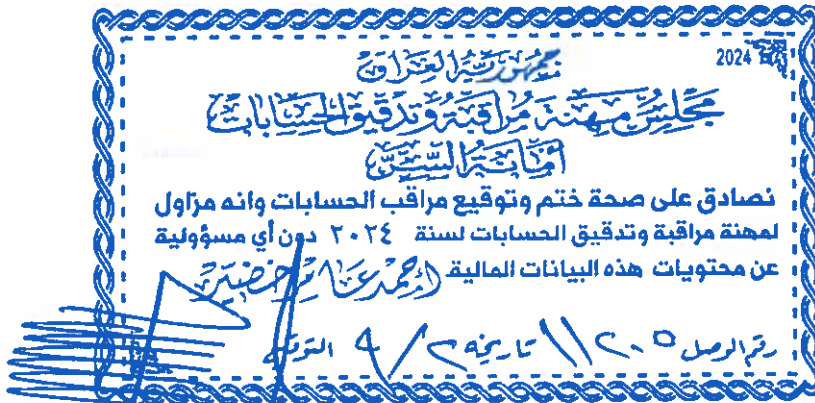 2024
جمهورية العراق
مجلس مهنة مراقبة وتدقيق الحسابات
أمانة السر
نصادق على صحة ختم وتوقيع مراقب الحسابات وانه مزاول
لمهنة مراقبة وتدقيق الحسابات لسنة ٢٠٢٤ دون أي مسؤولية
عن محتويات هذه البيانات المالية احمد عامر خضير
رقم الوصل تاريخه التوقيع